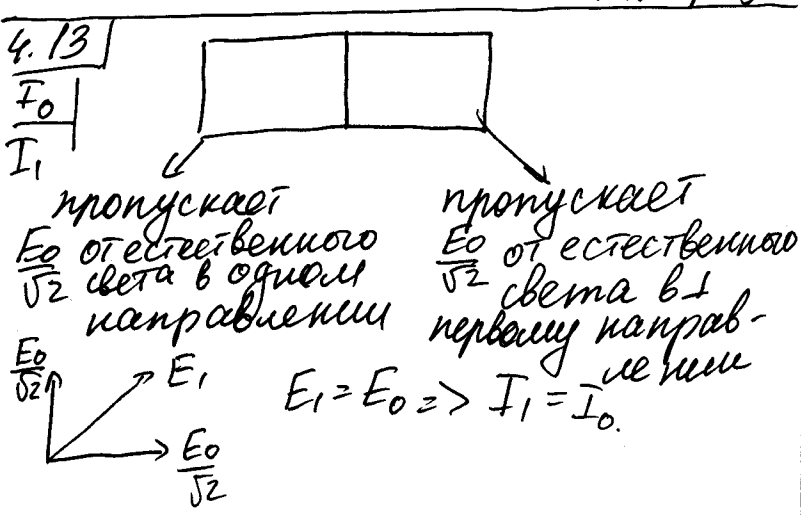 4.13
I₀
I₁
пропускает
E₀/√2 от естественного
света в одном
направлении
пропускает
E₀/√2 от естественного
света в ⊥
первому направ-
лении
E₀/√2
E₁
E₀/√2
E₁ = E₀ => I₁ = I₀.